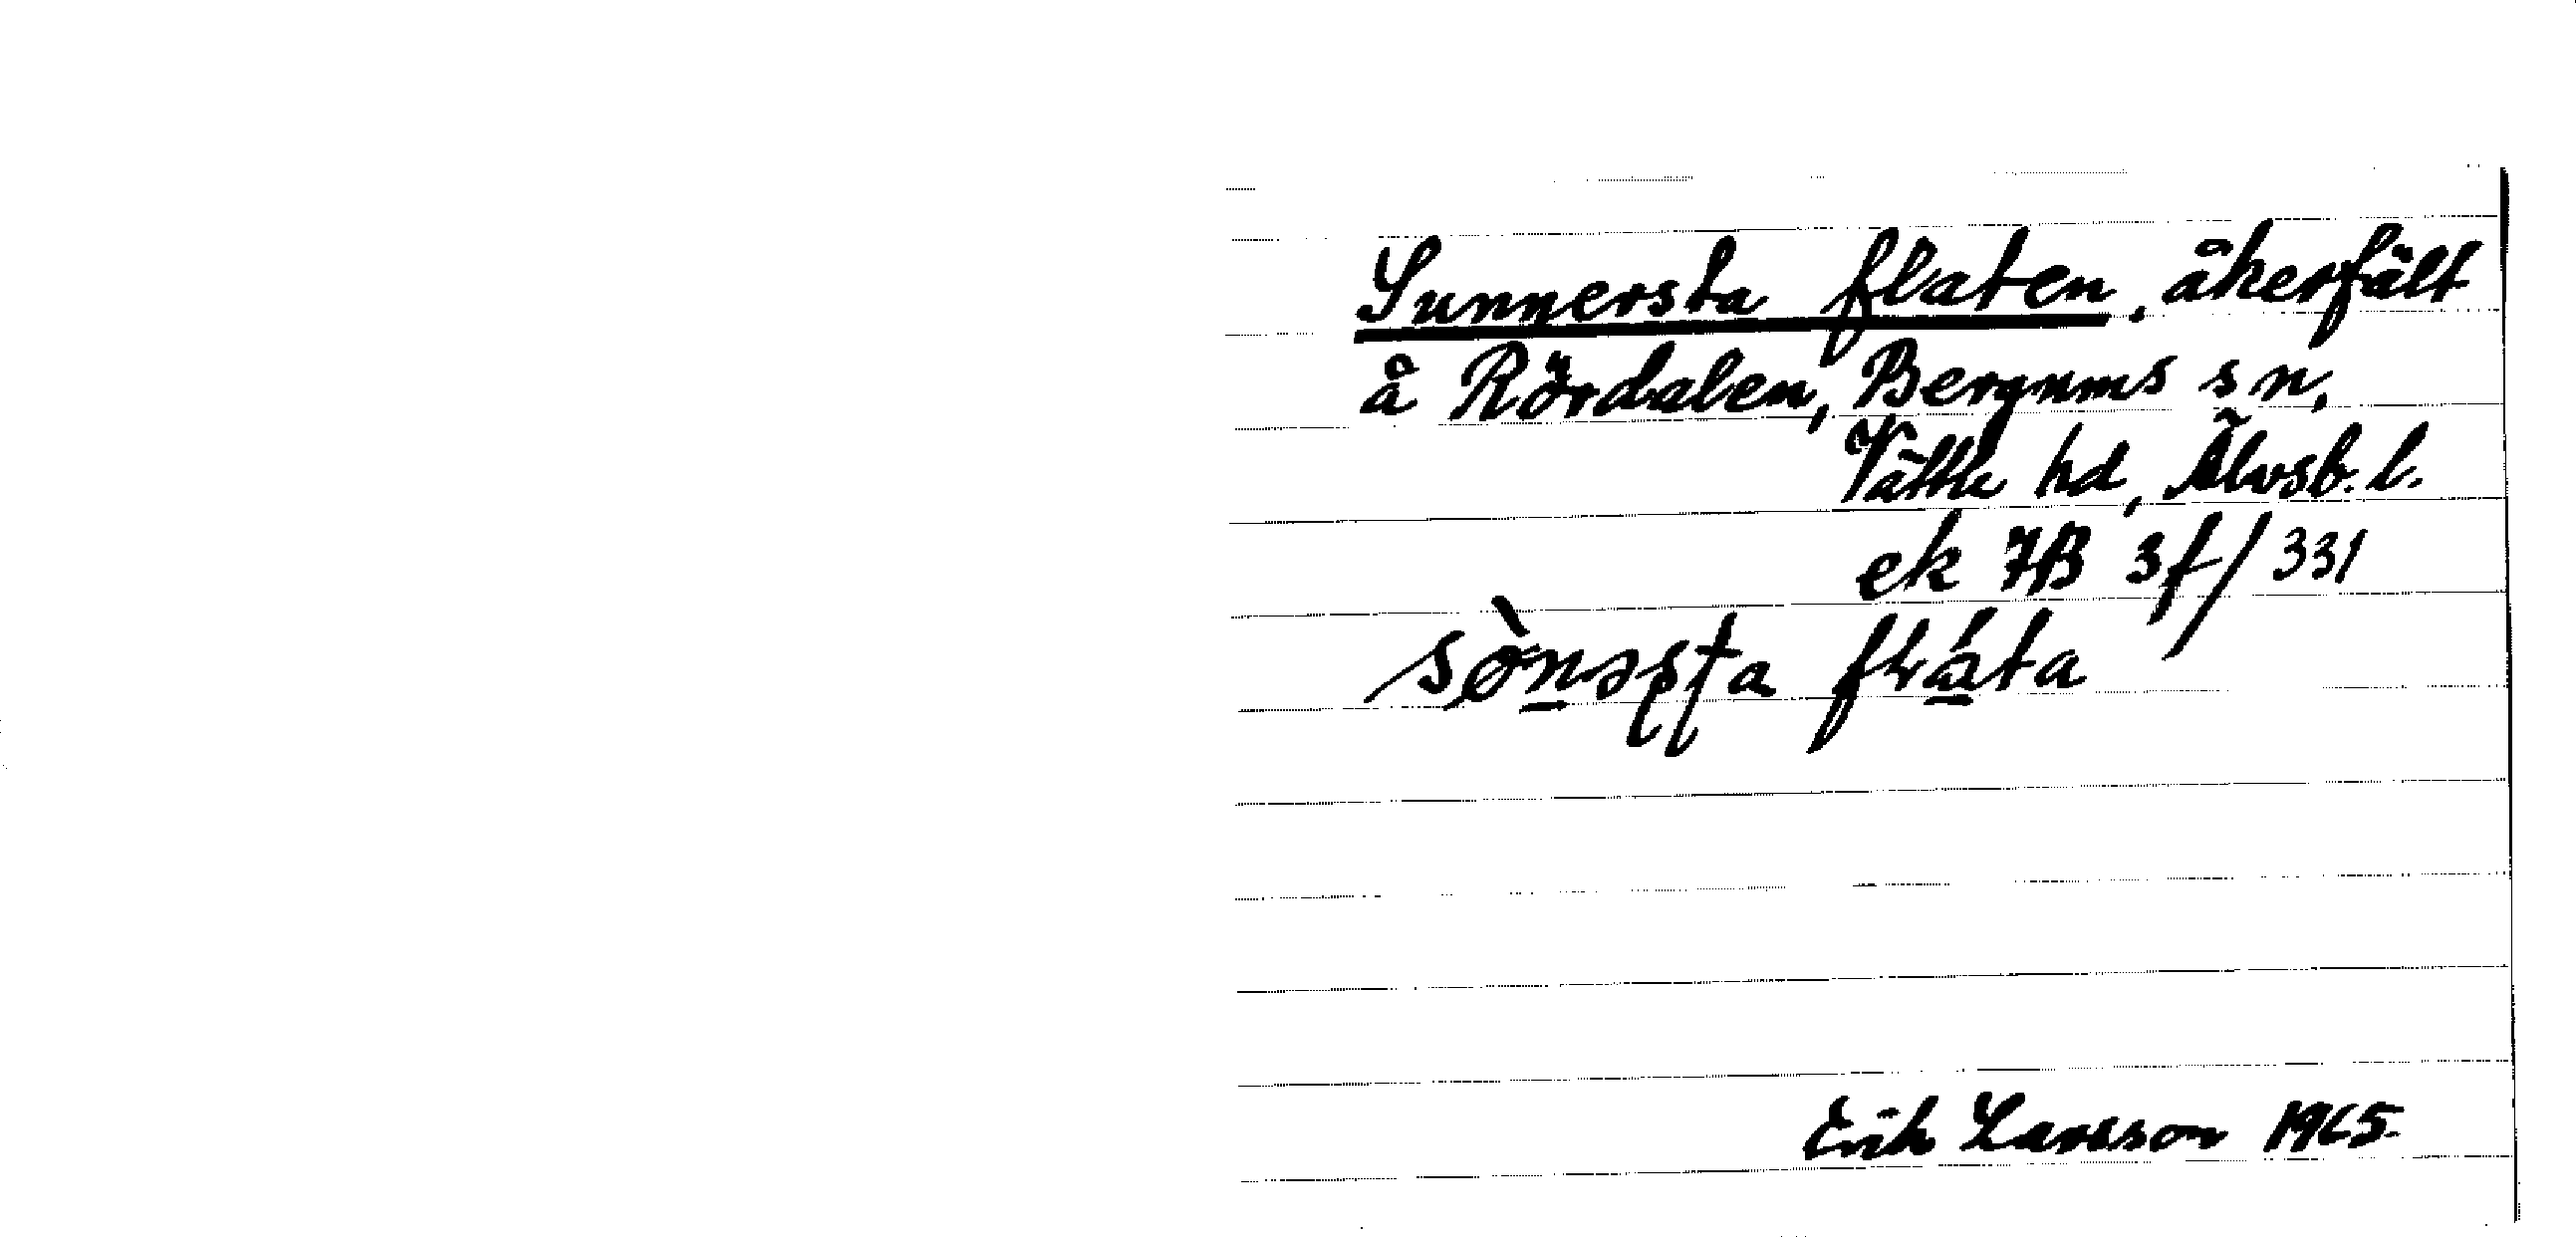 Sunnersta flaten, åkerfält
å Rördalen, Bergums sn,
Vättle hd, Älvsb. l.
ek 7B 3f/331
Erik Larsson 1965